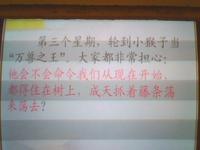 第三个星期，轮到小猴子当
“万兽之王”。大家都非常担心：
他会不会命令我们从现在开始，
都得住在树上，成天抓着藤条荡
来荡去？